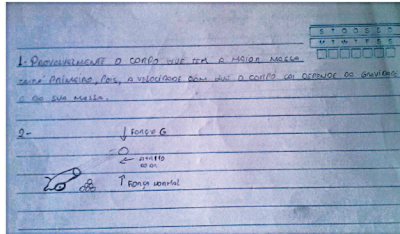 S T Q Q S S D
M T W T F S S
1- PROVAVELMENTE O CORPO QUE TEM A MAIOR MASSA
CAIRÁ PRIMEIRO, POIS, A VELOCIDADE COM QUE O CORPO CAI DEPENDE DA GRAVIDADE
E DA SUA MASSA.
2-
↓ FORÇA G
← ATRITO
DO AR
↑ FORÇA NORMAL